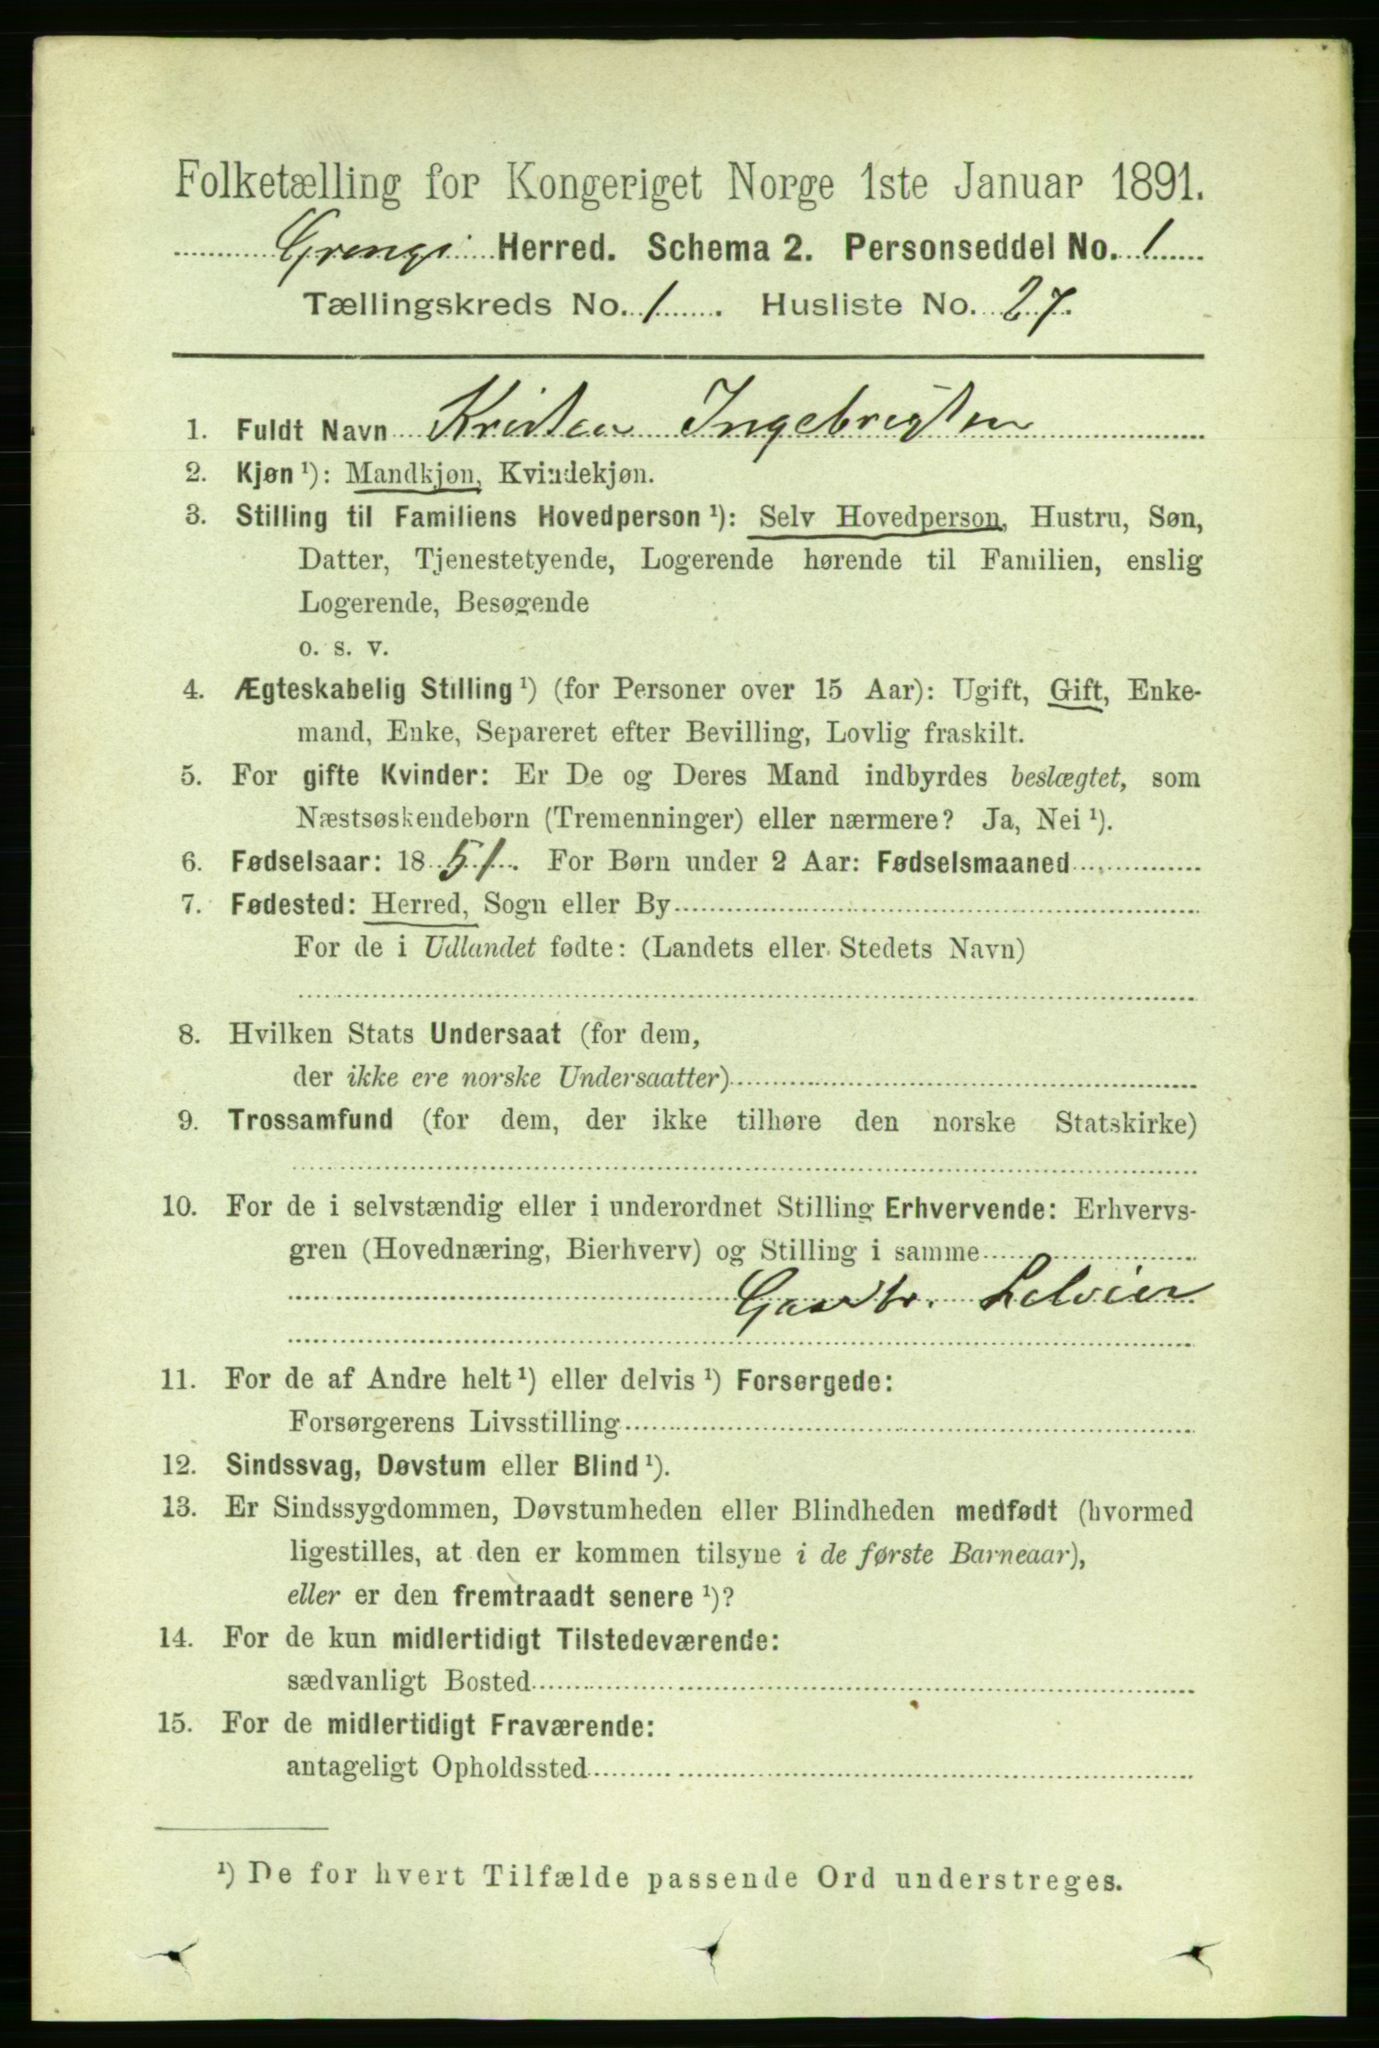 Folketælling for Kongeriget Norge 1ste Januar 1891.
Herred. Schema 2. Personseddel No. 1
Tællingskreds No. 1. Husliste No. 27.
1. Fuldt Navn Kristen Ingebrigtsen
2. Kjøn ¹): Mandkjøn, Kvindekjøn.
3. Stilling til Familiens Hovedperson ¹): Selv Hovedperson, Hustru, Søn,
Datter, Tjenestetyende, Logerende hørende til Familien, enslig
Logerende, Besøgende
o. s. v.
4. Ægteskabelig Stilling ¹) (for Personer over 15 Aar): Ugift, Gift, Enke-
mand, Enke, Separeret efter Bevilling, Lovlig fraskilt.
5. For gifte Kvinder: Er De og Deres Mand indbyrdes beslægtet, som
Næstsøskendebørn (Tremenninger) eller nærmere? Ja, Nei ¹).
6. Fødselsaar: 1851. For Børn under 2 Aar: Fødselsmaaned
7. Fødested: Herred, Sogn eller By
For de i Udlandet fødte: (Landets eller Stedets Navn)
8. Hvilken Stats Undersaat (for dem,
der ikke ere norske Undersaatter)
9. Trossamfund (for dem, der ikke tilhøre den norske Statskirke)
10. For de i selvstændig eller i underordnet Stilling Erhvervende: Erhvervs-
gren (Hovednæring, Bierhverv) og Stilling i samme
Gaardbr. Selveier
11. For de af Andre helt ¹) eller delvis ¹) Forsørgede:
Forsørgerens Livsstilling
12. Sindssvag, Døvstum eller Blind ¹).
13. Er Sindssygdommen, Døvstumheden eller Blindheden medfødt (hvormed
ligestilles, at den er kommen tilsyne i de første Barneaar),
eller er den fremtraadt senere ¹)?
14. For de kun midlertidigt Tilstedeværende:
sædvanligt Bosted
15. For de midlertidigt Fraværende:
antageligt Opholdssted
¹) De for hvert Tilfælde passende Ord understreges.